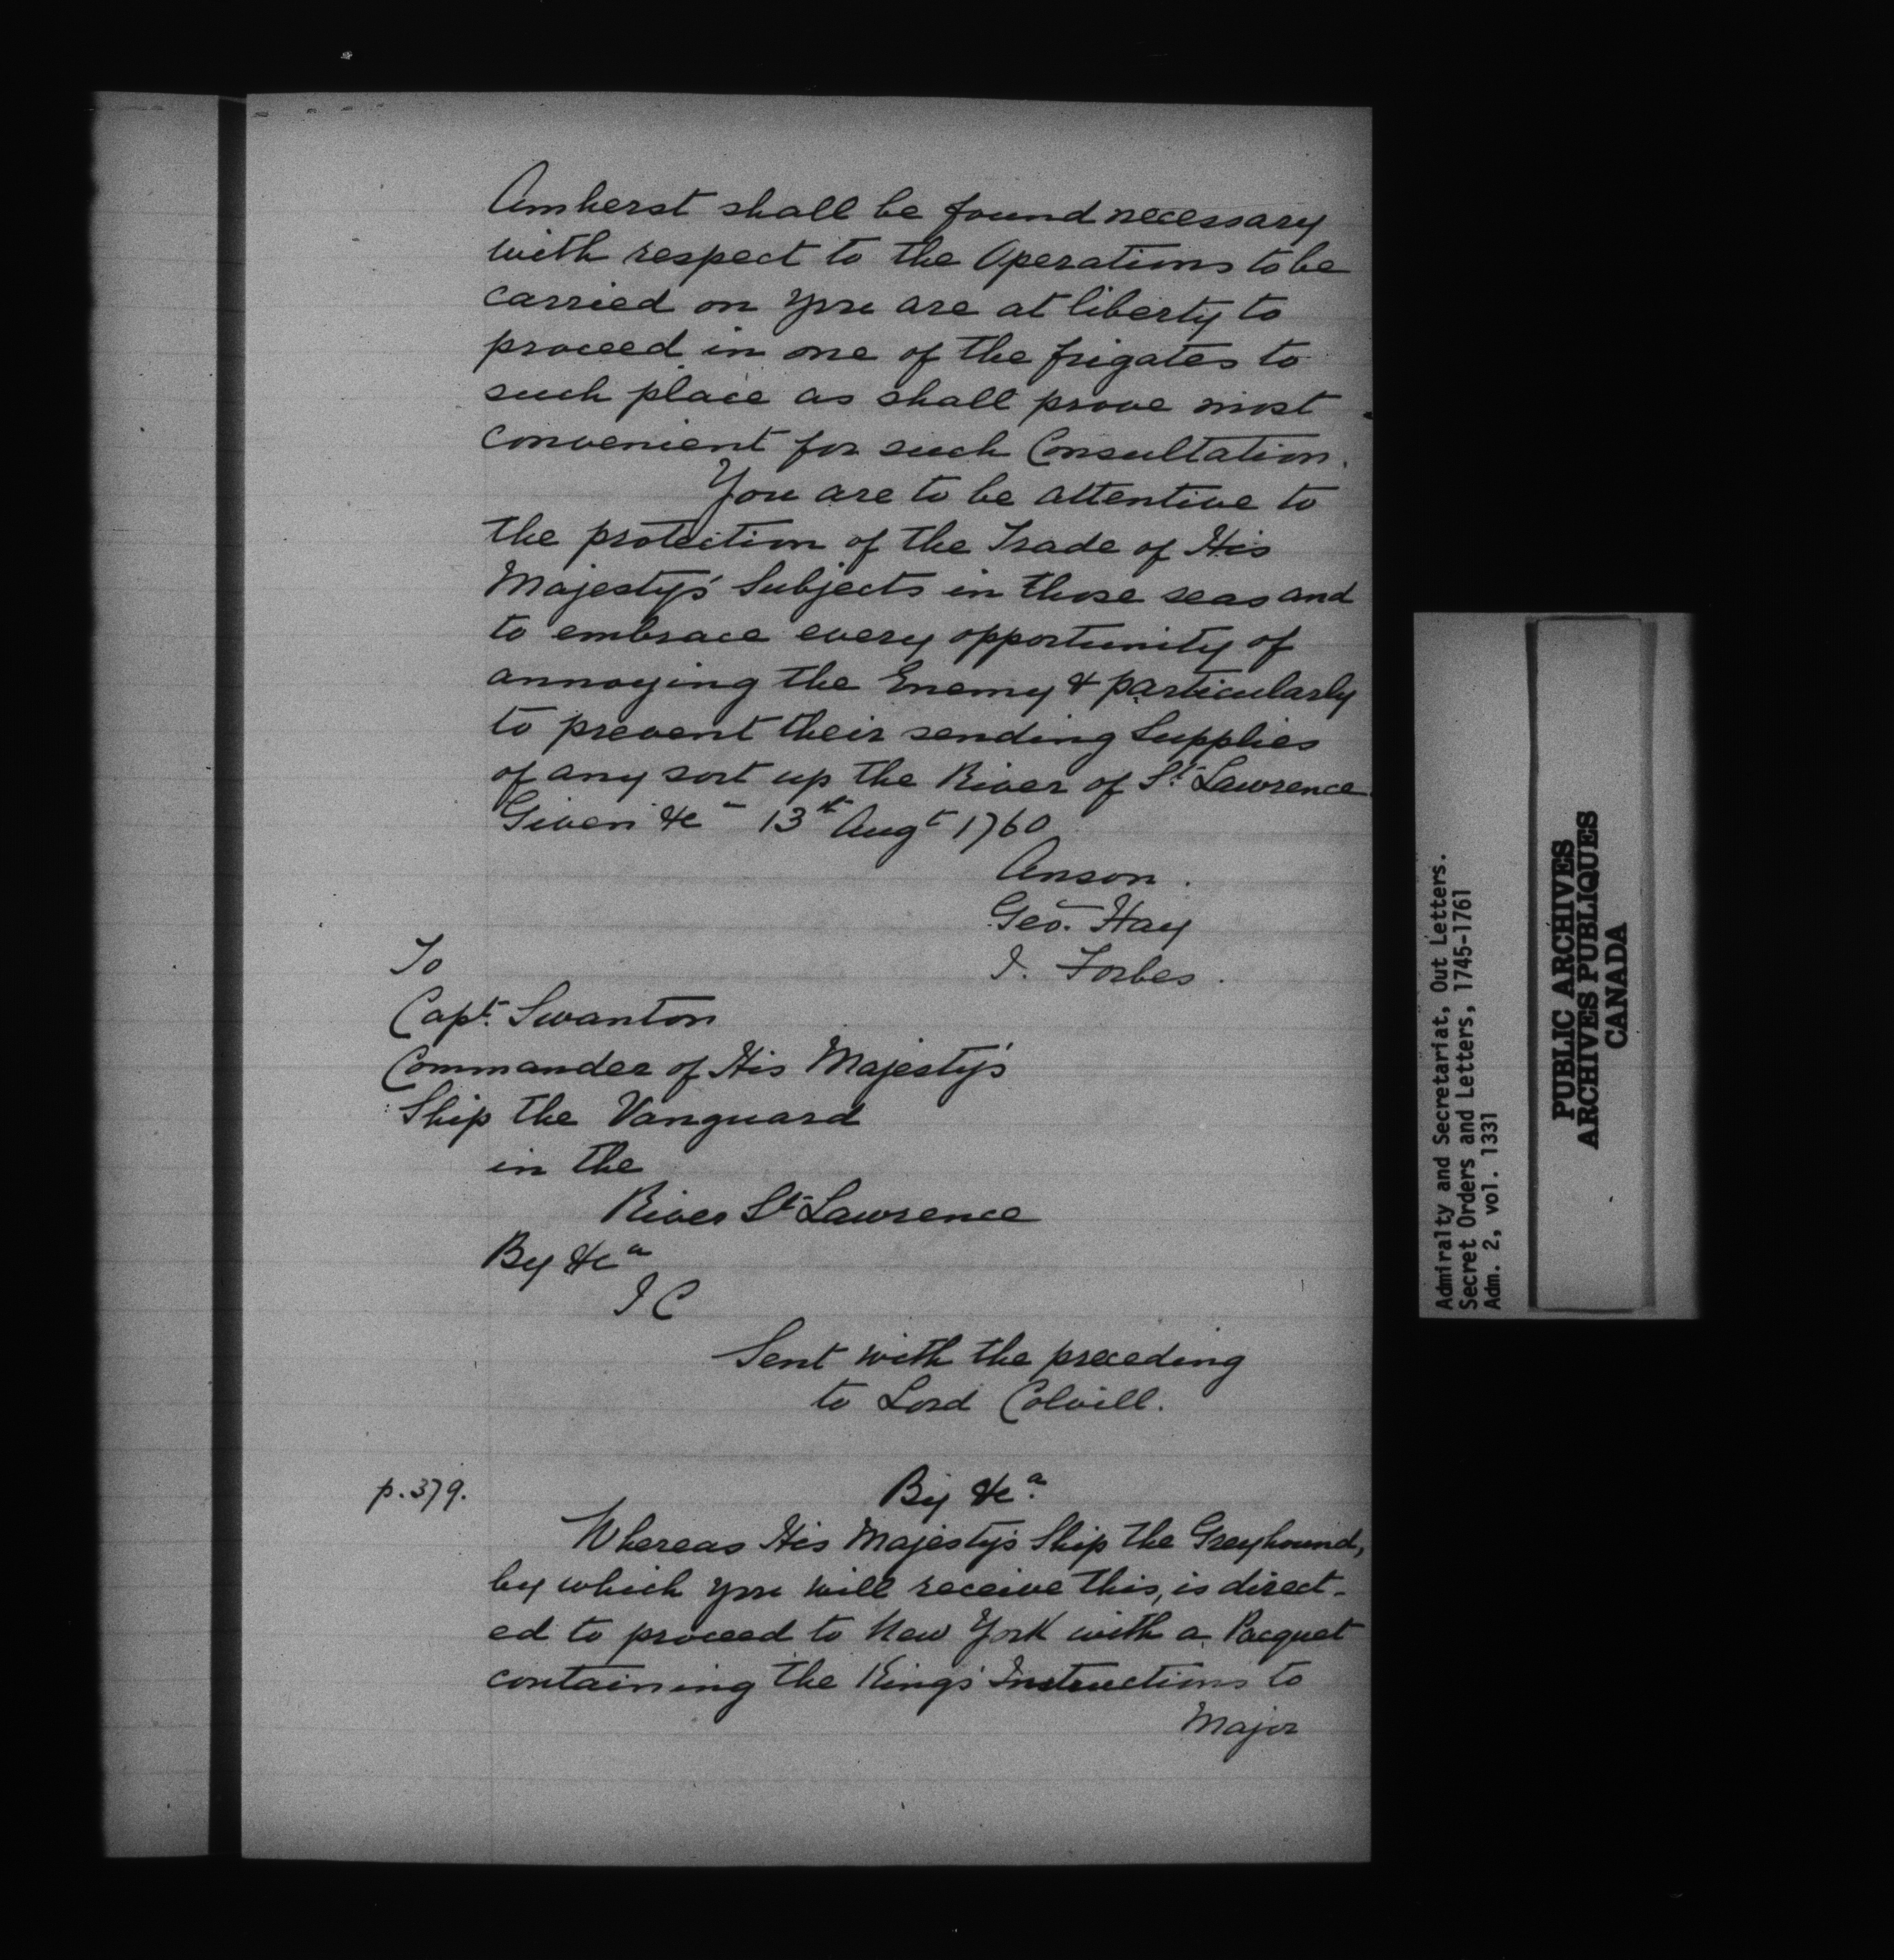 Amherst shall be found necessary
with respect to the Operations to be
carried on you are at liberty to
proceed in one of the frigates to
such place as shall prove most
convenient for such Consultation.
You are to be attentive to
the protection of the Trade of His
Majesty's Subjects in those seas and
to embrace every opportunity of
annoying the Enemy & particularly
to prevent their sending Supplies
of any sort up the River of St. Lawrence.
Given &c 13th Augt 1760
Anson.
Geo. Hay
J. Forbes.
To
Capt. Swanton
Commander of His Majesty's
Ship the Vanguard
in the
River St Lawrence
By &ca
J C
Sent with the preceding
to Lord Colvill.
p. 379.
By &ca.
Whereas His Majesty's Ship the Greyhound,
by which you will receive this, is direct-
ed to proceed to New York with a Pacquet
containing the King's Instructions to
Major
Admiralty and Secretariat, Out Letters.
Secret Orders and Letters, 1745-1761
Adm. 2, vol. 1331
PUBLIC ARCHIVES
ARCHIVES PUBLIQUES
CANADA